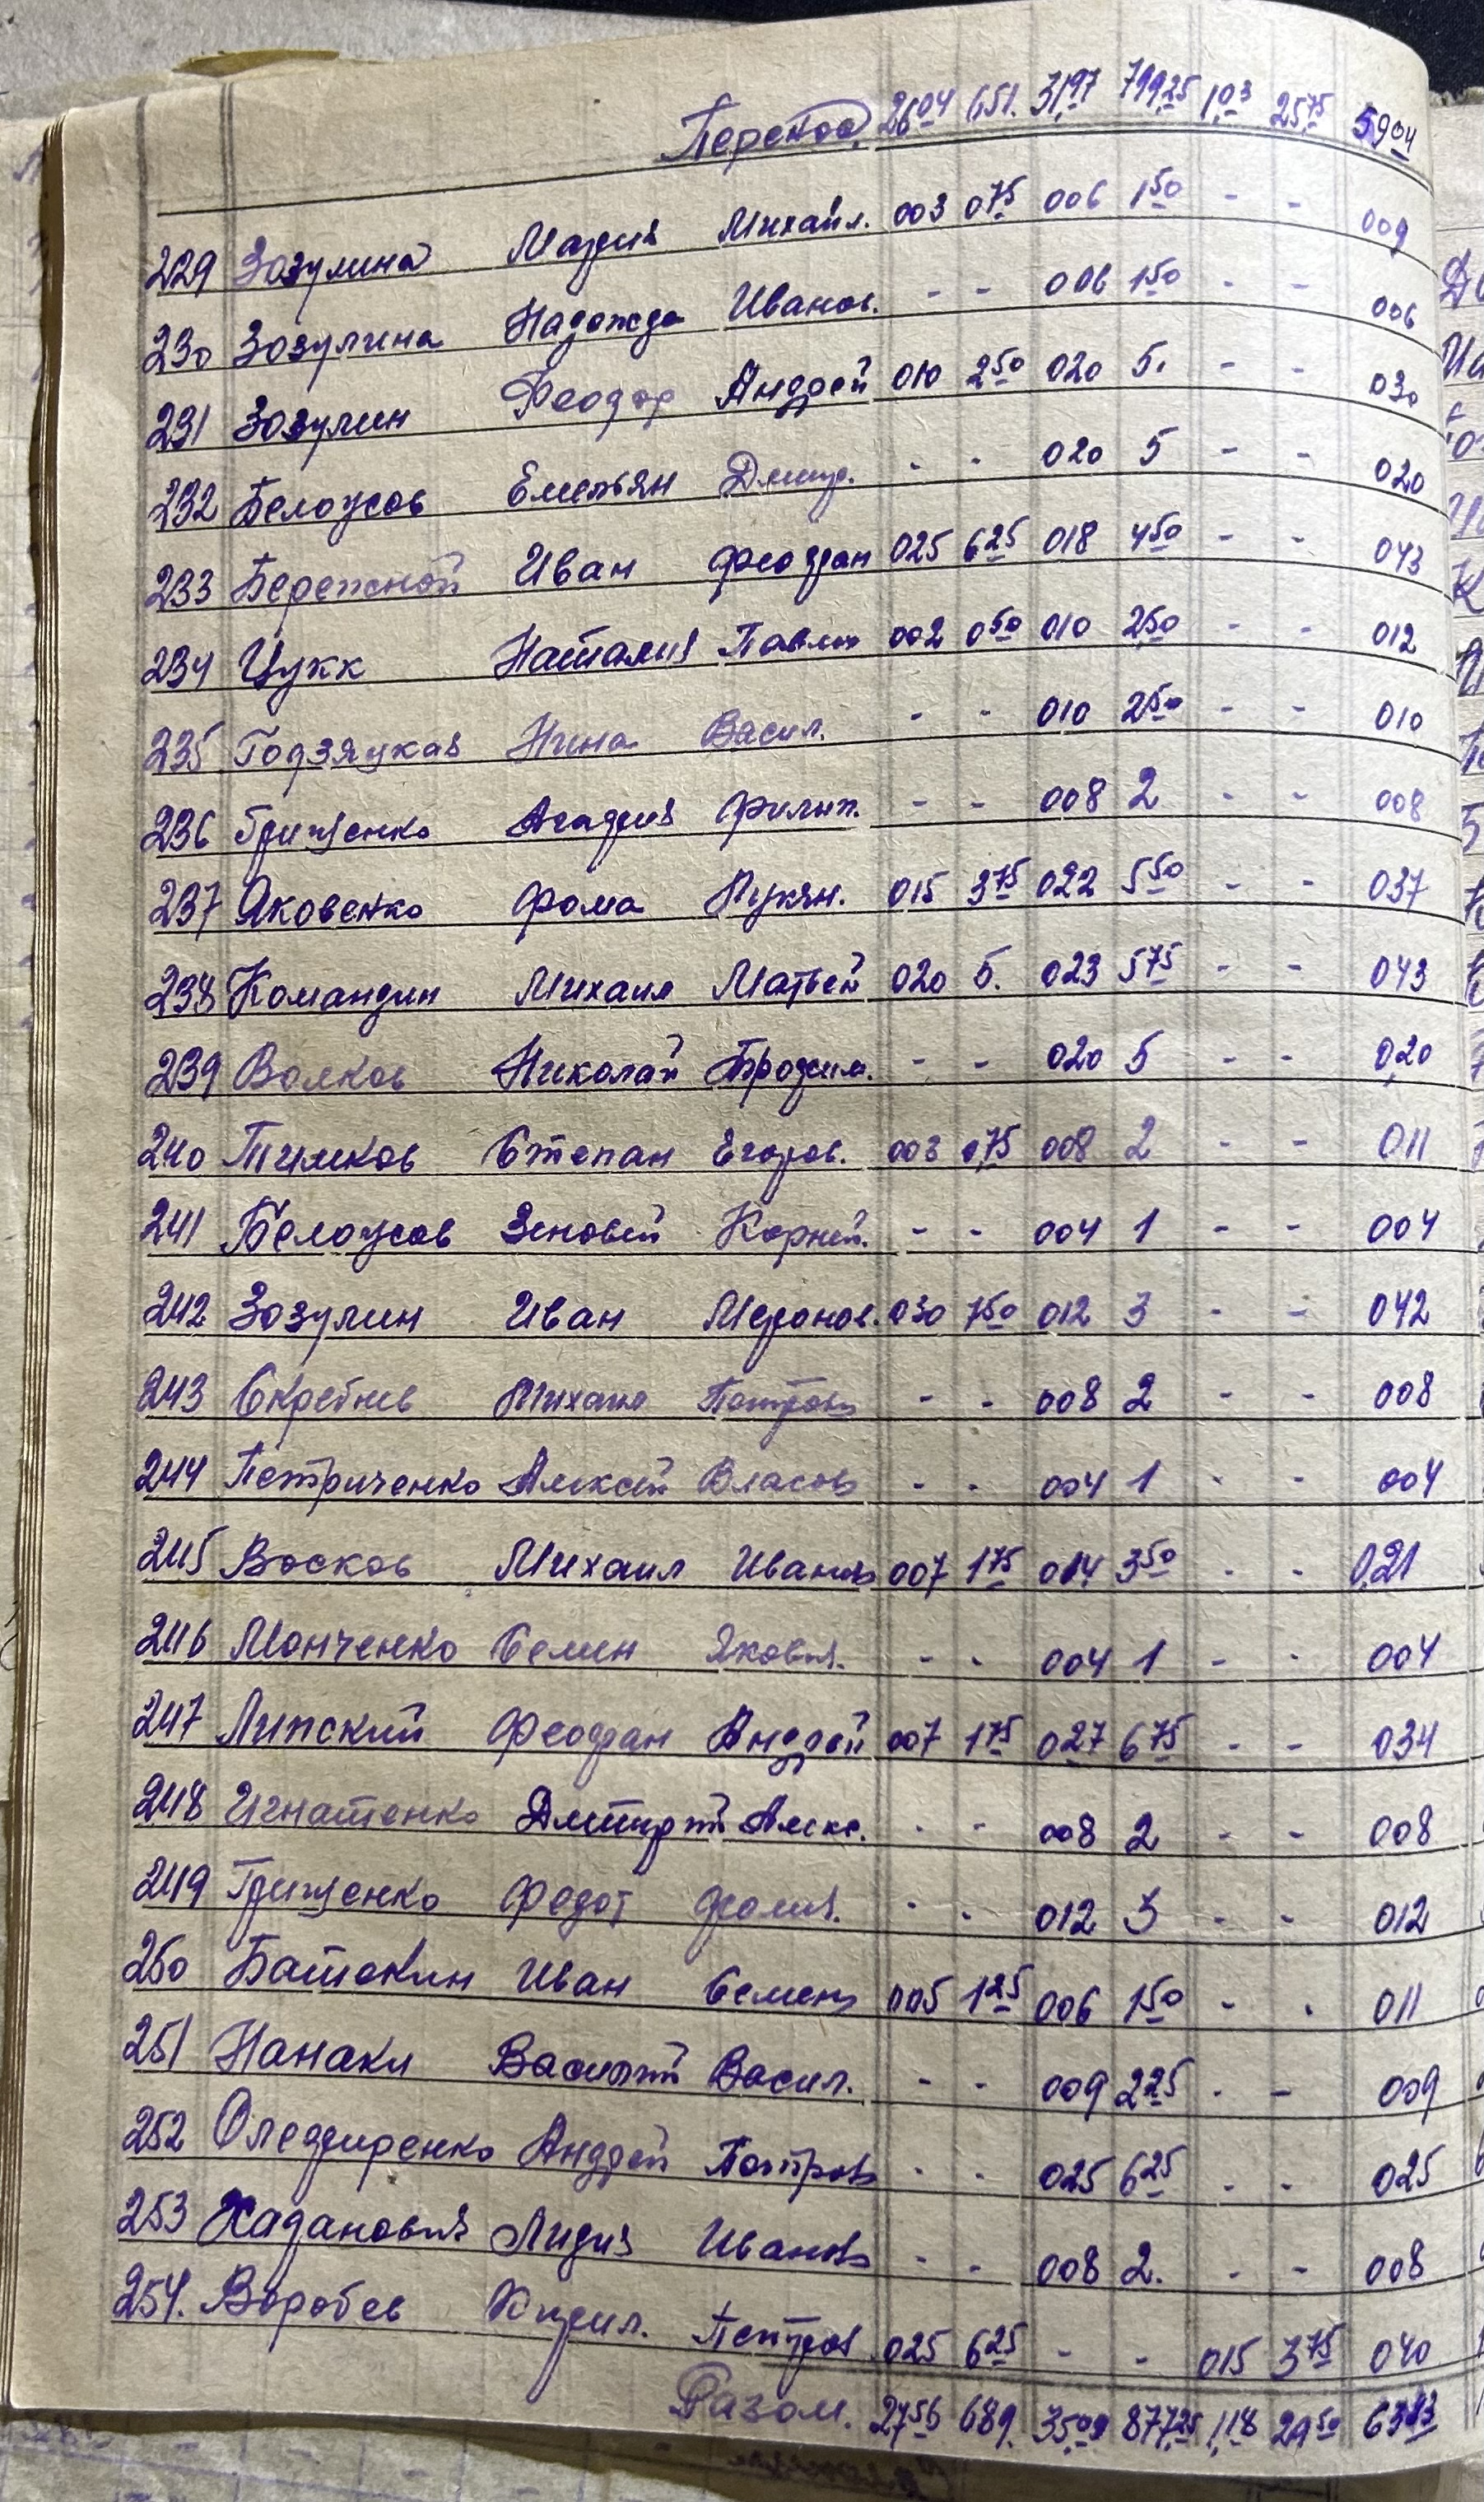 Перенос. 26 04 651. 31,97 799,25 1,03 25,75 59 04
229 Зозулина Мария Михайл. 003 0 75 006 1 50 - - 009
230 Зозулина Надежда Иванов. - - 006 1 50 - - 006
231 Зозулин Феодор Андрей 010 2 50 020 5. - - 030
232 Белоусов Емельян Дмитр. - - 020 5 - - 020
233 Бережной Иван Феофан 025 6 25 018 4 50 - - 043
234 Цукк Наталия Павлов 002 0 50 010 2,50 - - 012
235 Годзяцкая Нина Васил. - - 010 2 50 - - 010
236 Грищенко Агафия Филип. - - 008 2 - - 008
237 Яковенко Фома Лукян. 015 3 75 022 5 50 - - 037
238 Командин Михаил Матвей 020 5. 023 5 75 - - 043
239 Волков Николай - - 020 5 - - 0,20
240 Тимков Степан Егоров. 003 0,75 008 2 - - 011
241 Белоусов Зеновей Корней. - - 004 1 - - 004
242 Зозулин Иван Меронов. 030 7 50 012 3 - - 042
243 Скребнев Михаил Петров - - 008 2 - - 008
244 Петриченко Алексей Власов - - 004 1 - - 004
245 Восков Михаил Иванов 007 1 75 014 3 50 - - 0,21
246 Монченко Семен Яковл. - - 004 1 - - 004
247 Липский Феофан Андрей 007 1 75 027 6 75 - - 034
248 Игнатенко Дмитрий Алекс. - - 008 2 - - 008
249 Грищенко Федот Фомич. - - 012 3 - - 012
250 Батенин Иван Семен 005 1 25 006 1 50 - - 011
251 Панаки Василий Васил. - - 009 2 25 - - 009
252 Олефиренко Андрей Петров - - 025 6 25 - - 025
253 Хаданович Лидия Иванов - - 008 2. - - 008
254. Воробев Кирил. Петров 025 6 25 - - 015 3 75 040
Разом. 27 56 689. 35,09 877,25 1,18 29 50 63 83